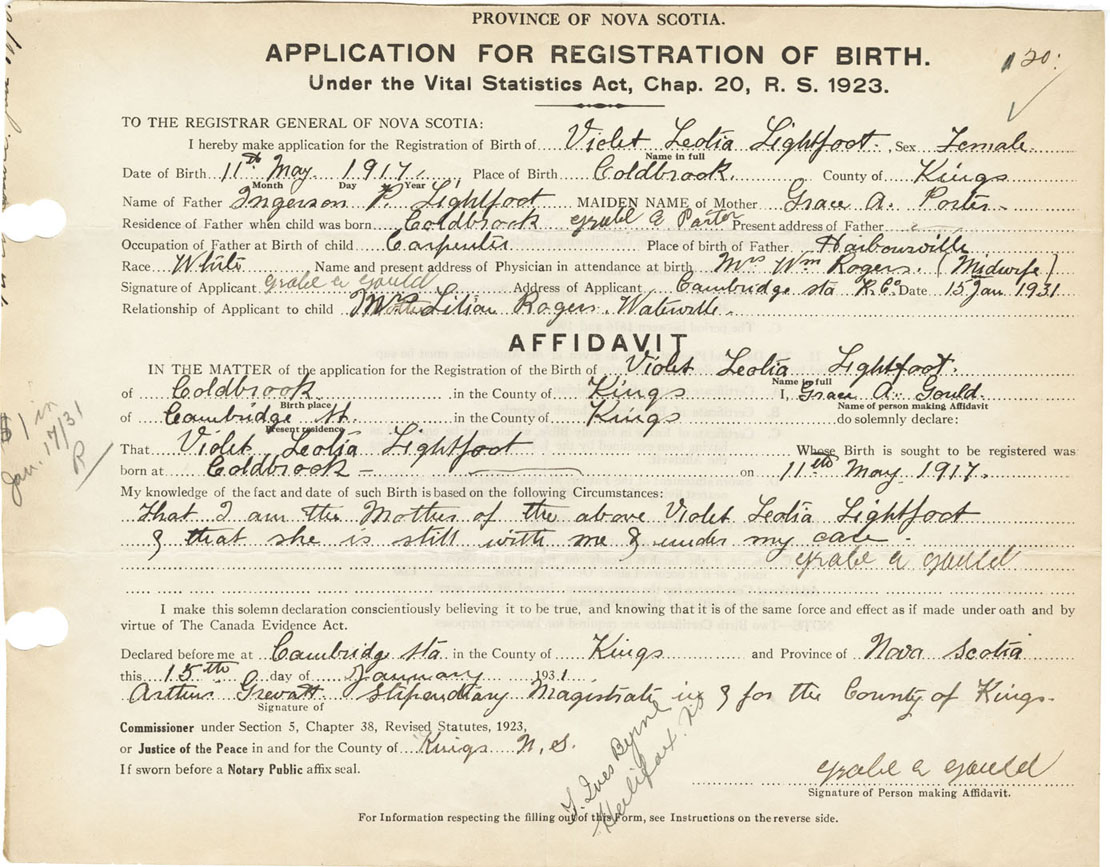 PROVINCE OF NOVA SCOTIA.
APPLICATION FOR REGISTRATION OF BIRTH.
Under the Vital Statistics Act, Chap. 20, R. S. 1923.
TO THE REGISTRAR GENERAL OF NOVA SCOTIA:
I hereby make application for the Registration of Birth of Violet Leotia Lightfoot. Sex Female
Name in full
Date of Birth 11th May 1917. Place of Birth Coldbrook. County of Kings
Month Day Year
Name of Father Ingerson P. Lightfoot MAIDEN NAME of Mother Grace A. Porter
Residence of Father when child was born Coldbrook grace a Porter Present address of Father
Occupation of Father at Birth of child Carpenter Place of birth of Father Harbourville
Race White Name and present address of Physician in attendance at birth Mrs Wm Rogers. (Midwife)
Signature of Applicant grace a Gould Address of Applicant Cambridge sta K. Co Date 15 Jan 1931
Relationship of Applicant to child Mrs Lilian Rogers Waterville.
AFFIDAVIT
IN THE MATTER of the application for the Registration of the Birth of Violet Leotia Lightfoot.
Name in full
of Coldbrook in the County of Kings I, Grace A. Gould.
Birth place Name of person making Affidavit
of Cambridge St. in the County of Kings do solemnly declare:
Present residence
That Violet Leotia Lightfoot Whose Birth is sought to be registered was
born at Coldbrook on 11th May 1917.
My knowledge of the fact and date of such Birth is based on the following Circumstances:
That I am the Mother of the above Violet Leotia Lightfoot
& that she is still with me & under my care.
grace a gould
I make this solemn declaration conscientiously believing it to be true, and knowing that it is of the same force and effect as if made under oath and by
virtue of The Canada Evidence Act.
Declared before me at Cambridge Sta in the County of Kings and Province of Nova Scotia
this 15th day of January 1931
Arthur Grevatt Stipendiary Magistrate in & for the County of Kings.
Signature of
Commissioner under Section 5, Chapter 38, Revised Statutes, 1923,
or Justice of the Peace in and for the County of Kings N. S.
If sworn before a Notary Public affix seal.
grace a gould
Signature of Person making Affidavit.
For Information respecting the filling out of this Form, see Instructions on the reverse side.
$1 in
Jan. 17/31
R
T. Ives Byrne
Halifax NS